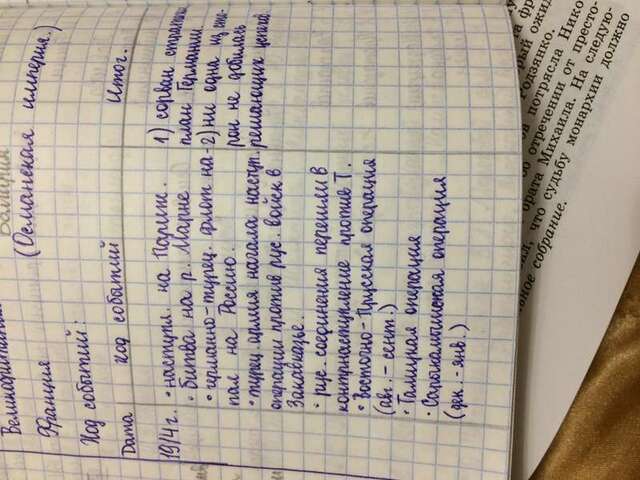 Великобритания
Болгария
Франция
(Османская империя.)
Ход событий:
Дата Ход событий Итог.
1914г. • наступл. на Париж.
• битва на р. Марне
• германно-турец. флот на-
пал на Россию.
• турец. армия начала наступ.
операции против рус. войск в
Закавказье.
• рус. соединения перешли в
контрнаступление против Т.
• Восточно-Прусская операция
(авг. - сент.)
• Галицкая операция
• Сарыкамышская операция
(дек. - янв.)
1) сорван
план Германии.
2) ни одна из сто-
рон не добилась
решающих успехов
потрясла Нико
Родзянко.
об отречении от престо-
брата Михаила. На следую-
что судьбу монархии должно
собрание.